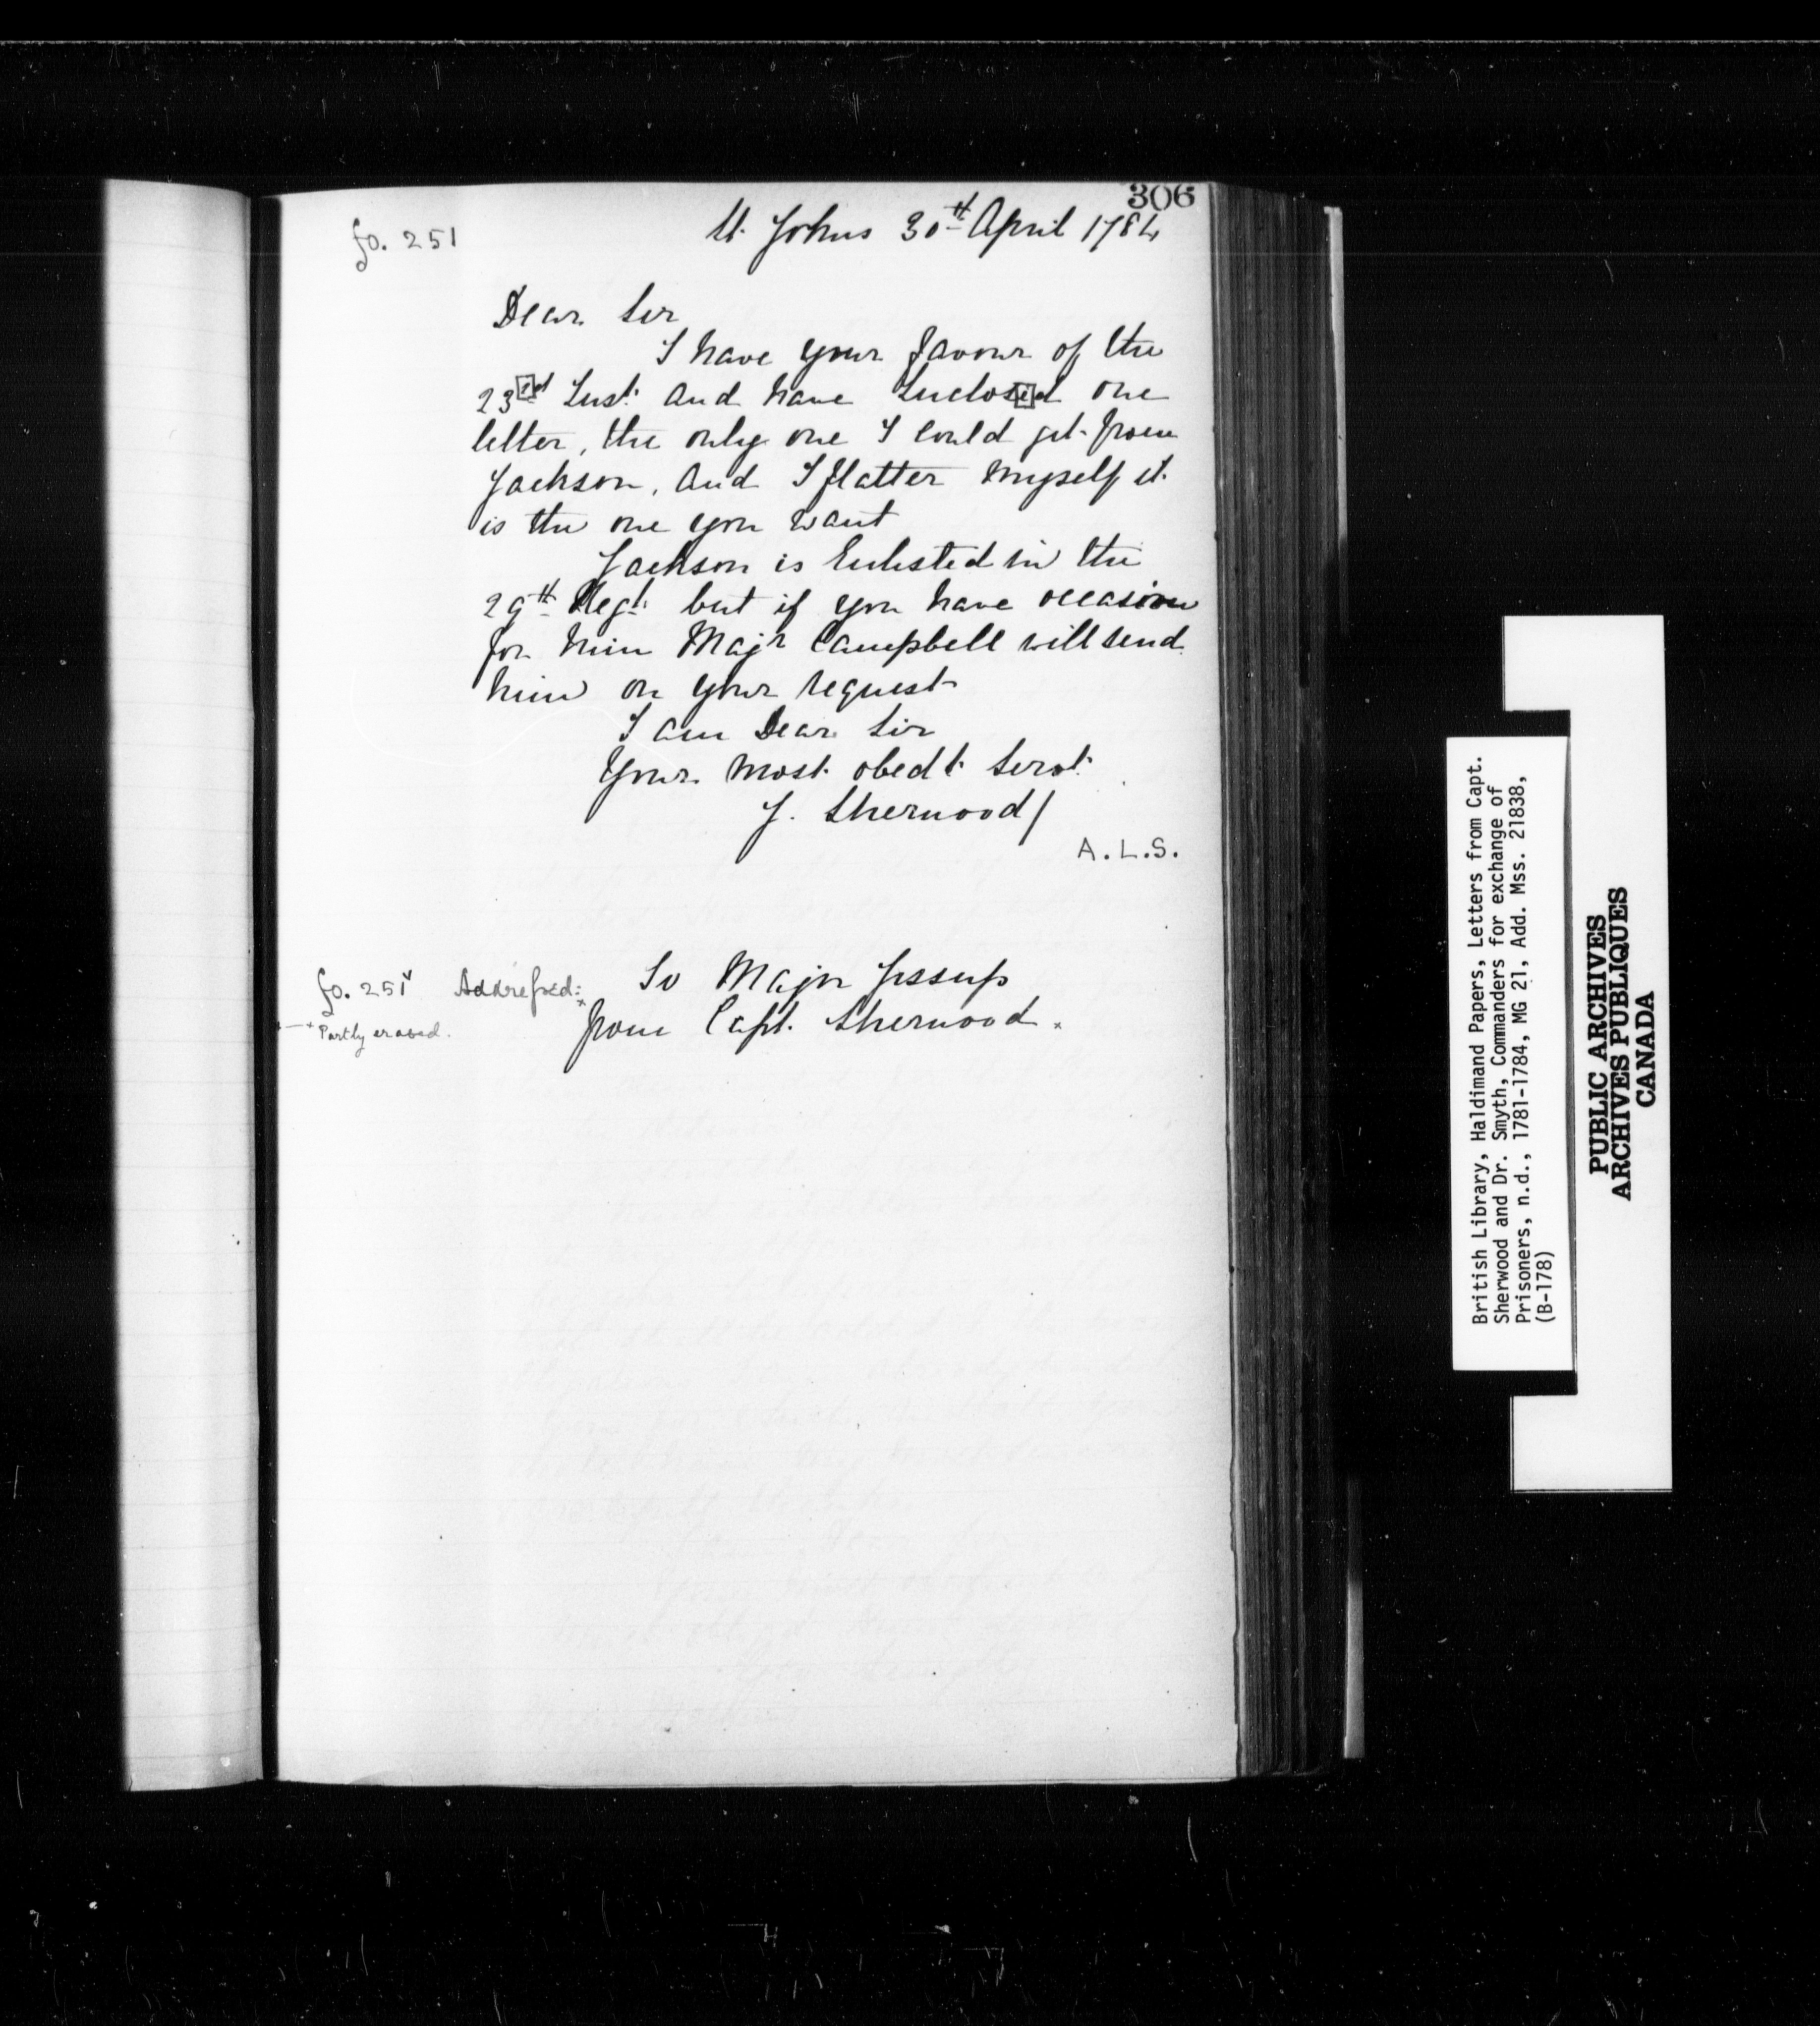 306
fo. 251
St. Johns 30th April 1784
Dear Sir
I have your favour of the
23[r]d Inst. And have Inclos[e]d one
letter, the only one I could get from
Jackson, And I flatter Myself it
is the one you want
Jackson is Enlisted in the
29th Regt. but if you have occasion
for him Majr Campbell will send
him on your request
I am Dear Sir
Your Most obedt Servt.
J. Sherwood/
A.L.S.
fo. 251v Addressed: To Major Jessup
from Capt. Sherwood x
x Partly erased.
British Library, Haldimand Papers, Letters from Capt.
Sherwood and Dr. Smyth, Commanders for exchange of
Prisoners, n.d., 1781-1784, MG 21, Add. Mss. 21838,
(B-178)
PUBLIC ARCHIVES
ARCHIVES PUBLIQUES
CANADA